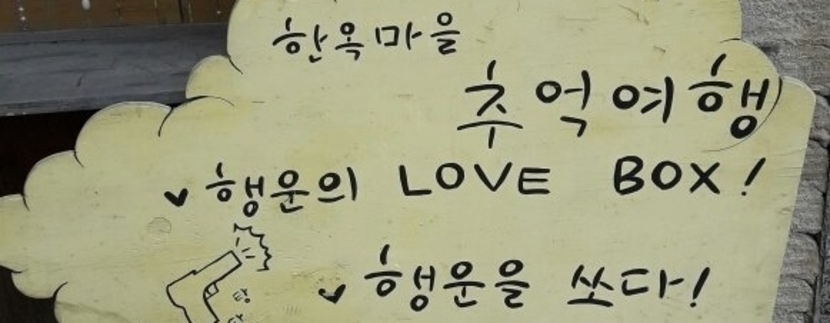 한옥마을
추억여행
행운의 LOVE BOX!
행운을 쏘다!
탕!